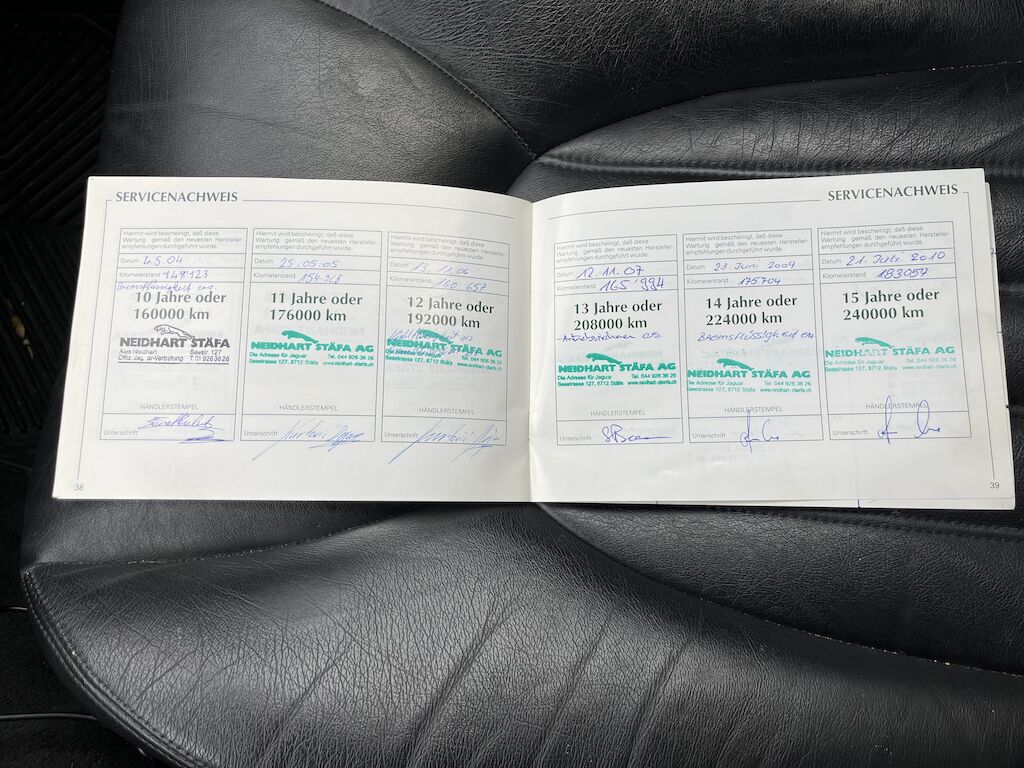 SERVICENACHWEIS
Hiermit wird bescheinigt, daß diese
Wartung gemäß den neuesten Hersteller-
empfehlungen durchgeführt wurde.
Datum 4.5.04
Kilometerstand 148'123
Bremsflüssigkeit ern.
10 Jahre oder
160000 km
NEIDHART STÄFA
Alex Neidhart Seestr. 127
Offiz. Jaguar-Vertretung T. 01 926 36 26
HÄNDLERSTEMPEL
Unterschrift
Hiermit wird bescheinigt, daß diese
Wartung gemäß den neuesten Hersteller-
empfehlungen durchgeführt wurde.
Datum 25.05.05
Kilometerstand 154'928
11 Jahre oder
176000 km
NEIDHART STÄFA AG
Die Adresse für Jaguar Tel. 044 926 36 26
Seestrasse 127, 8712 Stäfa www.neidhart-staefa.ch
HÄNDLERSTEMPEL
Unterschrift
Hiermit wird bescheinigt, daß diese
Wartung gemäß den neuesten Hersteller-
empfehlungen durchgeführt wurde.
Datum 13.11.06
Kilometerstand 160 657
12 Jahre oder
192000 km
NEIDHART STÄFA AG
Die Adresse für Jaguar Tel. 044 926 36 26
Seestrasse 127, 8712 Stäfa www.neidhart-staefa.ch
HÄNDLERSTEMPEL
Unterschrift
38
SERVICENACHWEIS
Hiermit wird bescheinigt, daß diese
Wartung gemäß den neuesten Hersteller-
empfehlungen durchgeführt wurde.
Datum 12.11.07
Kilometerstand 165'994
13 Jahre oder
208000 km
NEIDHART STÄFA AG
Die Adresse für Jaguar Tel. 044 926 36 26
Seestrasse 127, 8712 Stäfa www.neidhart-staefa.ch
HÄNDLERSTEMPEL
Unterschrift
Hiermit wird bescheinigt, daß diese
Wartung gemäß den neuesten Hersteller-
empfehlungen durchgeführt wurde.
Datum 23. Juni 2009
Kilometerstand 175704
14 Jahre oder
224000 km
Bremsflüssigkeit ern.
NEIDHART STÄFA AG
Die Adresse für Jaguar Tel. 044 926 36 26
Seestrasse 127, 8712 Stäfa www.neidhart-staefa.ch
HÄNDLERSTEMPEL
Unterschrift
Hiermit wird bescheinigt, daß diese
Wartung gemäß den neuesten Hersteller-
empfehlungen durchgeführt wurde.
Datum 21. Juli 2010
Kilometerstand 183057
15 Jahre oder
240000 km
NEIDHART STÄFA AG
Die Adresse für Jaguar Tel. 044 926 36 26
Seestrasse 127, 8712 Stäfa www.neidhart-staefa.ch
HÄNDLERSTEMPEL
Unterschrift
39